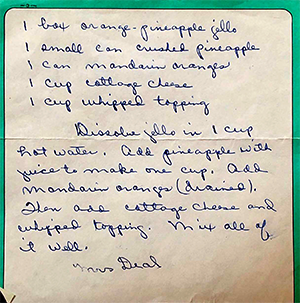 1 box orange-pineapple jello
1 small can crushed pineapple
1 can mandarin oranges
1 cup cottage cheese
1 cup whipped topping
Dissolve jello in 1 cup
hot water. Add pineapple with
juice to make one cup. Add
mandarin oranges (drained).
Then add cottage cheese and
whipped topping. Mix all of
it well.
Mrs Deal